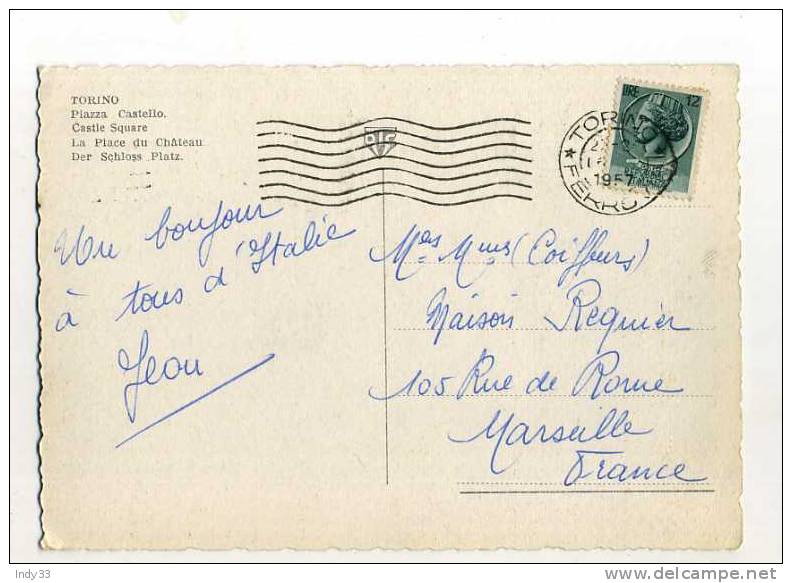 TORINO
Piazza Castello.
Castle Square
La Place du Château
Der Schloss Platz.
LIRE 12
TORINO
1957
FERROV
Un bonjour
à tous d'Italie
Jean
Mes Mms (Coiffeurs)
Maison Requier
105 Rue de Rome
Marseille
France
Indy33
www.delcampe.net